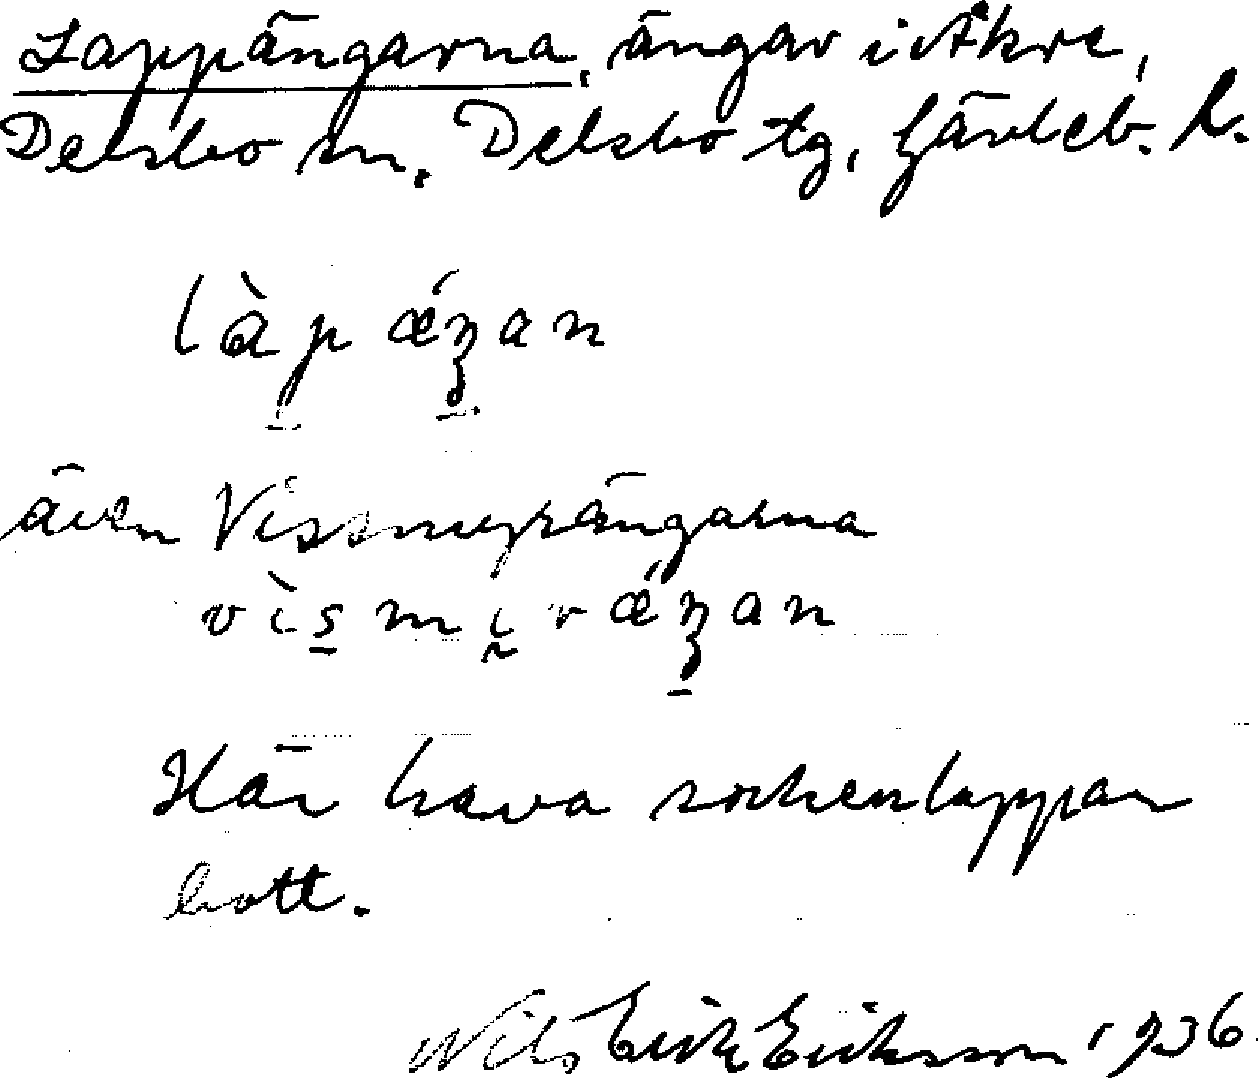 Lappängarna, ängar i Åkre,
Delsbo sn. Delsbo tg, Gävleb. l.
làpǽŋan
även Vissmyrängarna
vìsmirǽŋan
Här hava sockenlappar
bott.
Nils Erik Eriksson 1936